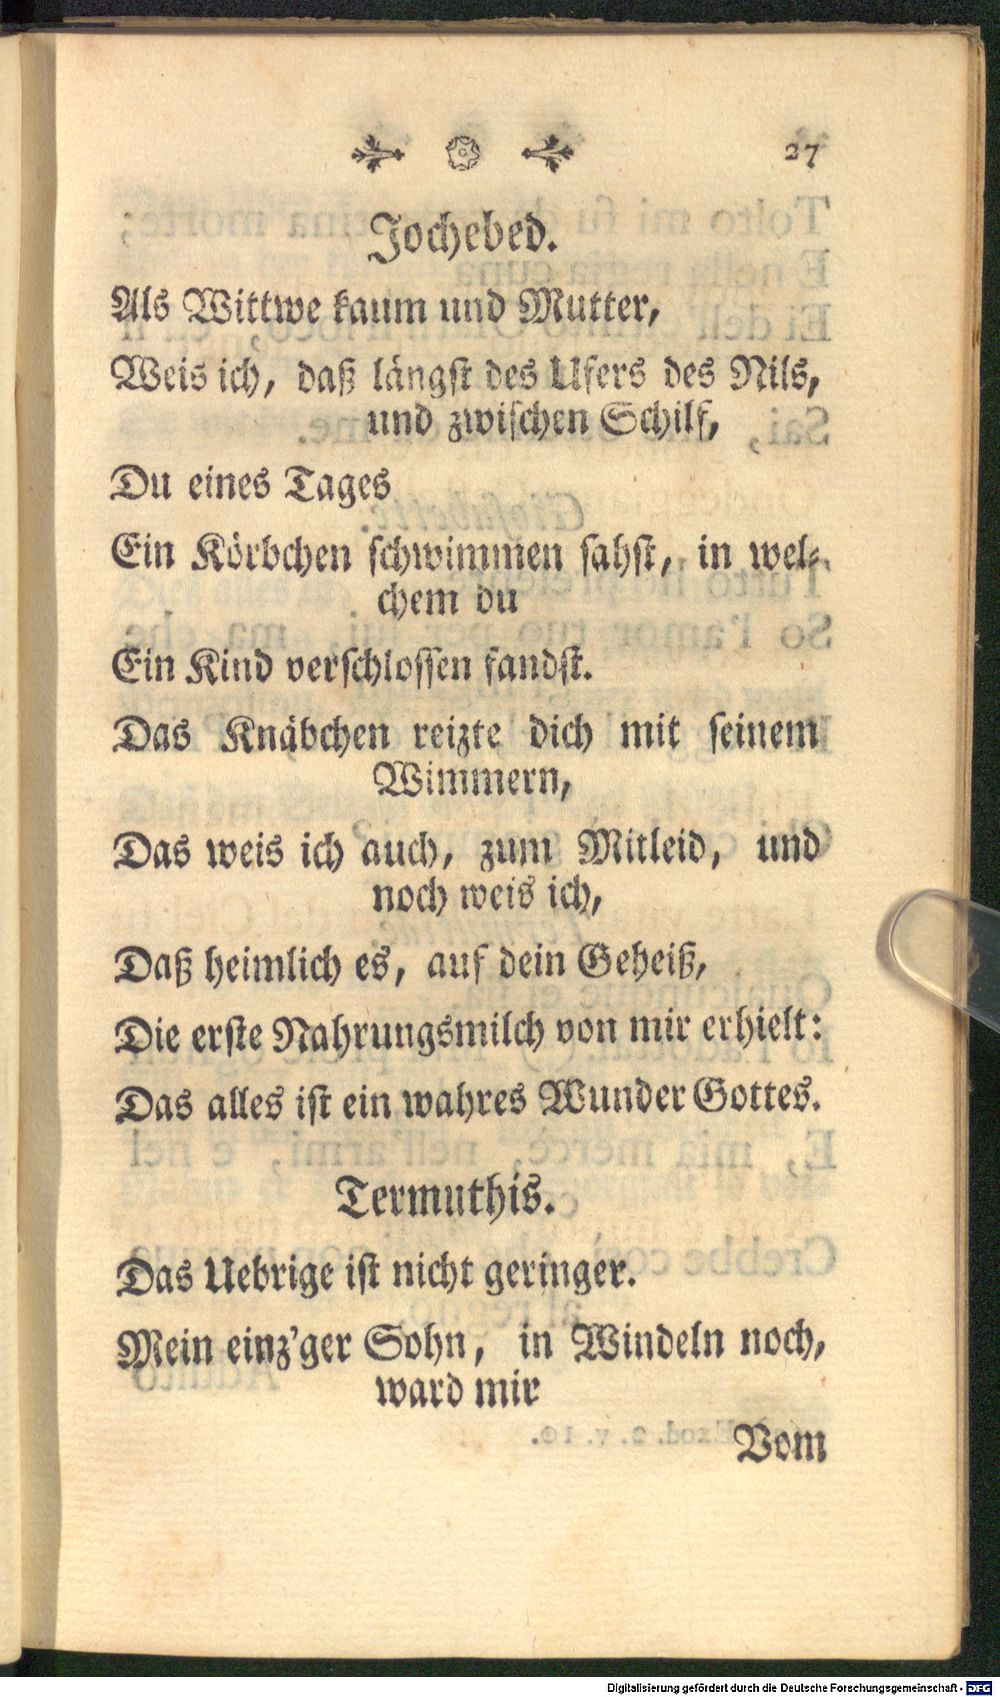 27
Jochebed.
Als Wittwe kaum und Mutter,
Weis ich, daß längst des Ufers des Nils,
und zwischen Schilf,
Du eines Tages
Ein Körbchen schwimmen sahst, in wel-
chem du
Ein Kind verschlossen fandst.
Das Knäbchen reizte dich mit seinem
Wimmern,
Das weis ich auch, zum Mitleid, und
noch weis ich,
Daß heimlich es, auf dein Geheiß,
Die erste Nahrungsmilch von mir erhielt:
Das alles ist ein wahres Wunder Gottes.
Termuthis.
Das Uebrige ist nicht geringer.
Mein einz'ger Sohn, in Windeln noch,
ward mir
Vom
Digitalisierung gefördert durch die Deutsche Forschungsgemeinschaft - DFG